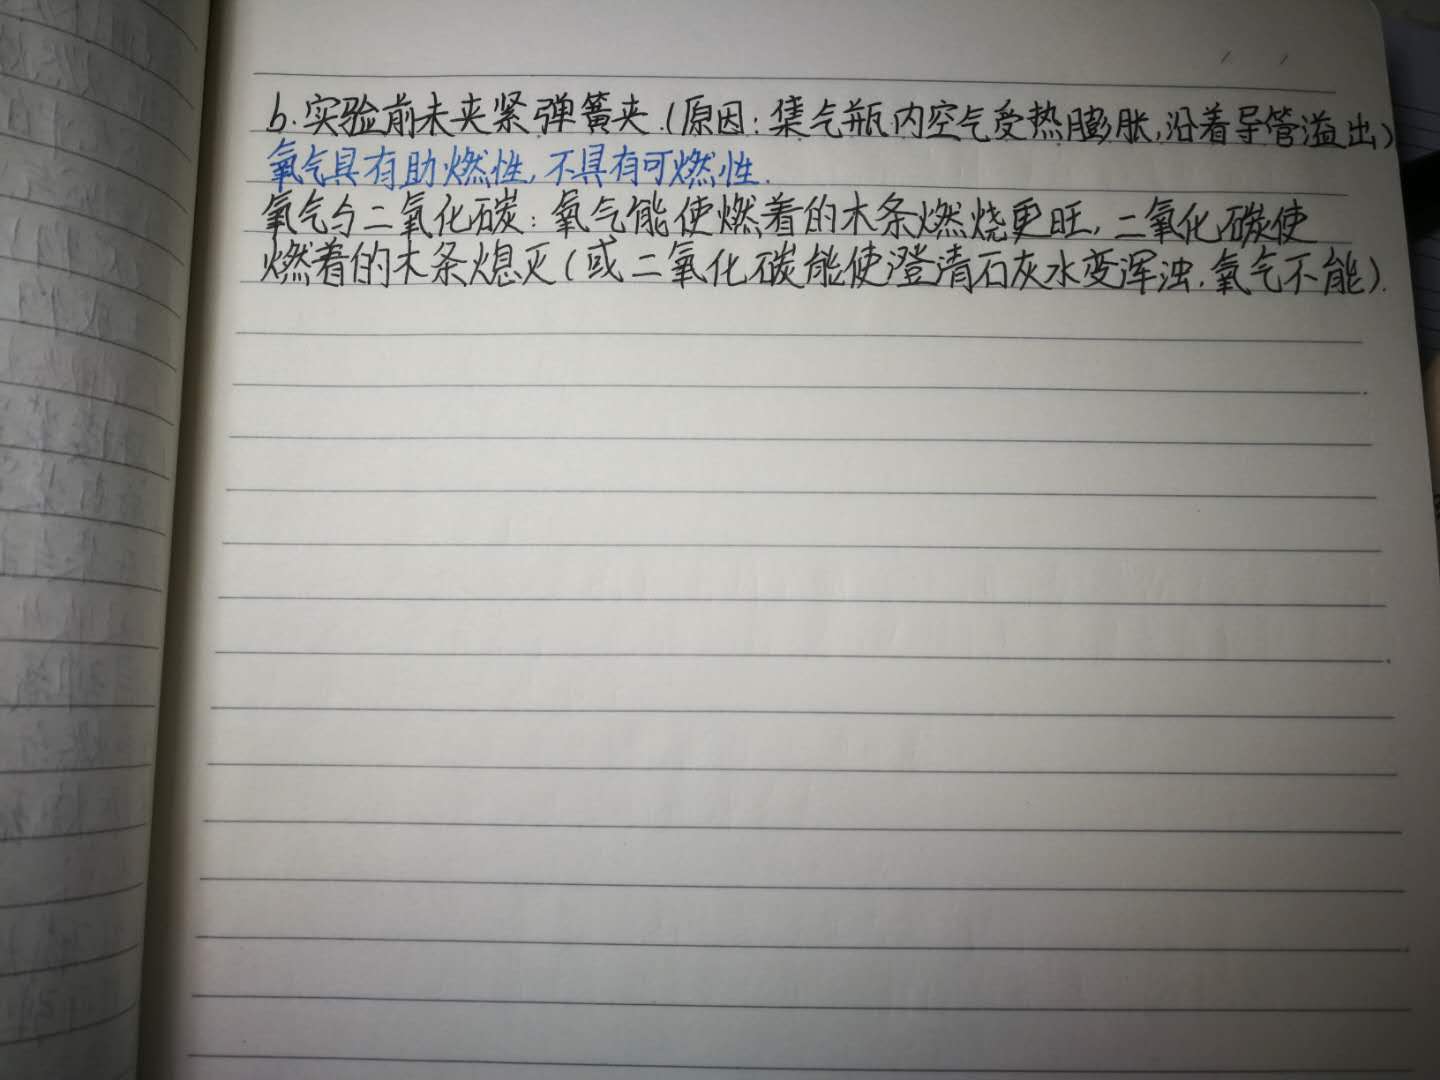 b.实验前未夹紧弹簧夹.(原因:集气瓶内空气受热膨胀,沿着导管溢出)
氧气具有助燃性,不具有可燃性.
氧气与二氧化碳:氧气能使燃着的木条燃烧更旺,二氧化碳使
燃着的木条熄灭(或二氧化碳能使澄清石灰水变浑浊.氧气不能).